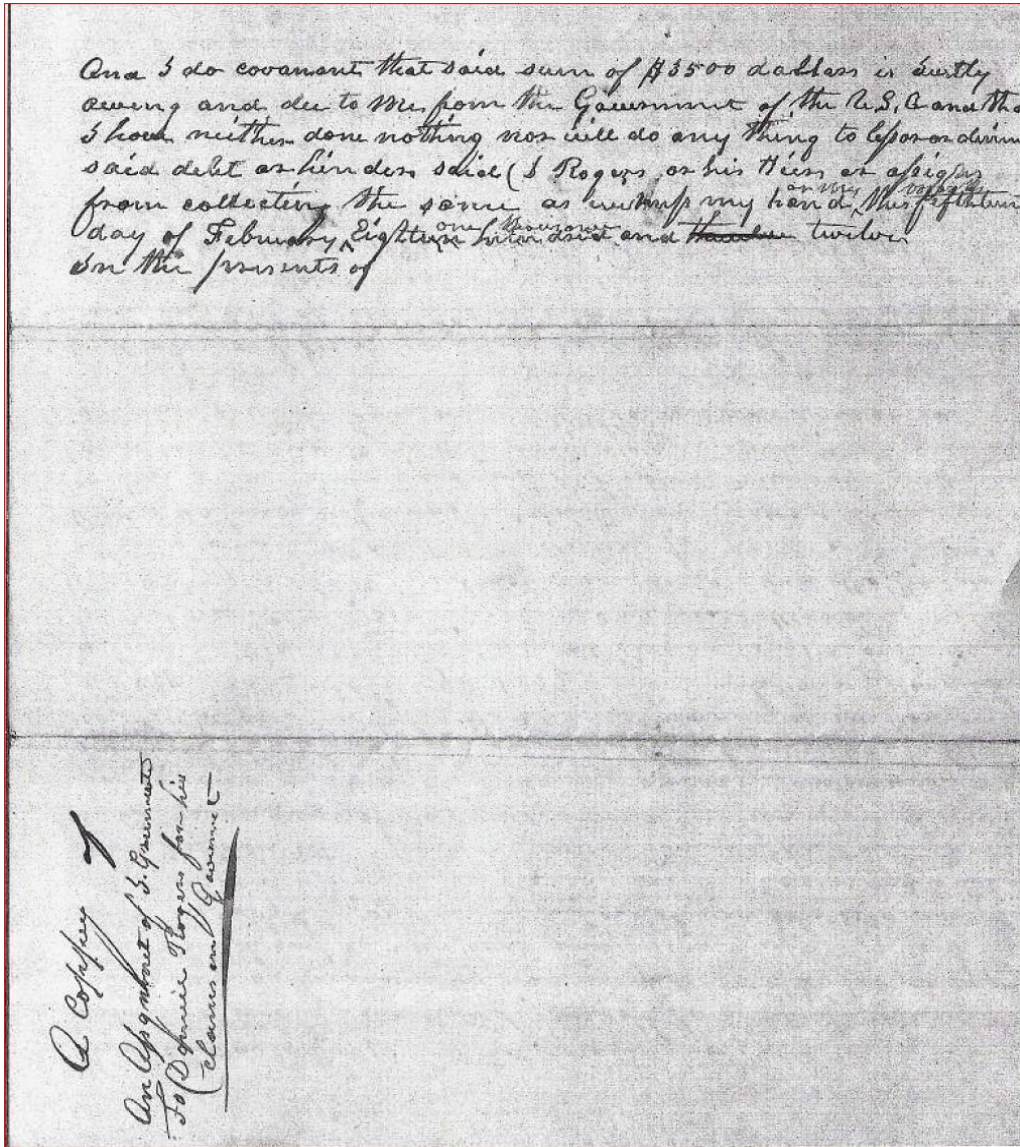 And I do covanant that said sum of $3500 dollars is Justly
oweing and due to Me from the Goverment of the U.S.A and tha
I have neither done nothing nor will do any thing to lessor or dimin
said debt or hinders said (D Rogers or his Hiers or assigns
from collecting the same as witness my hand this
day of February Eighteen one thousand hundred and twelve
In the presents of
A Coppey of
An Assignment of
To Rogers for his
claims on Goverment